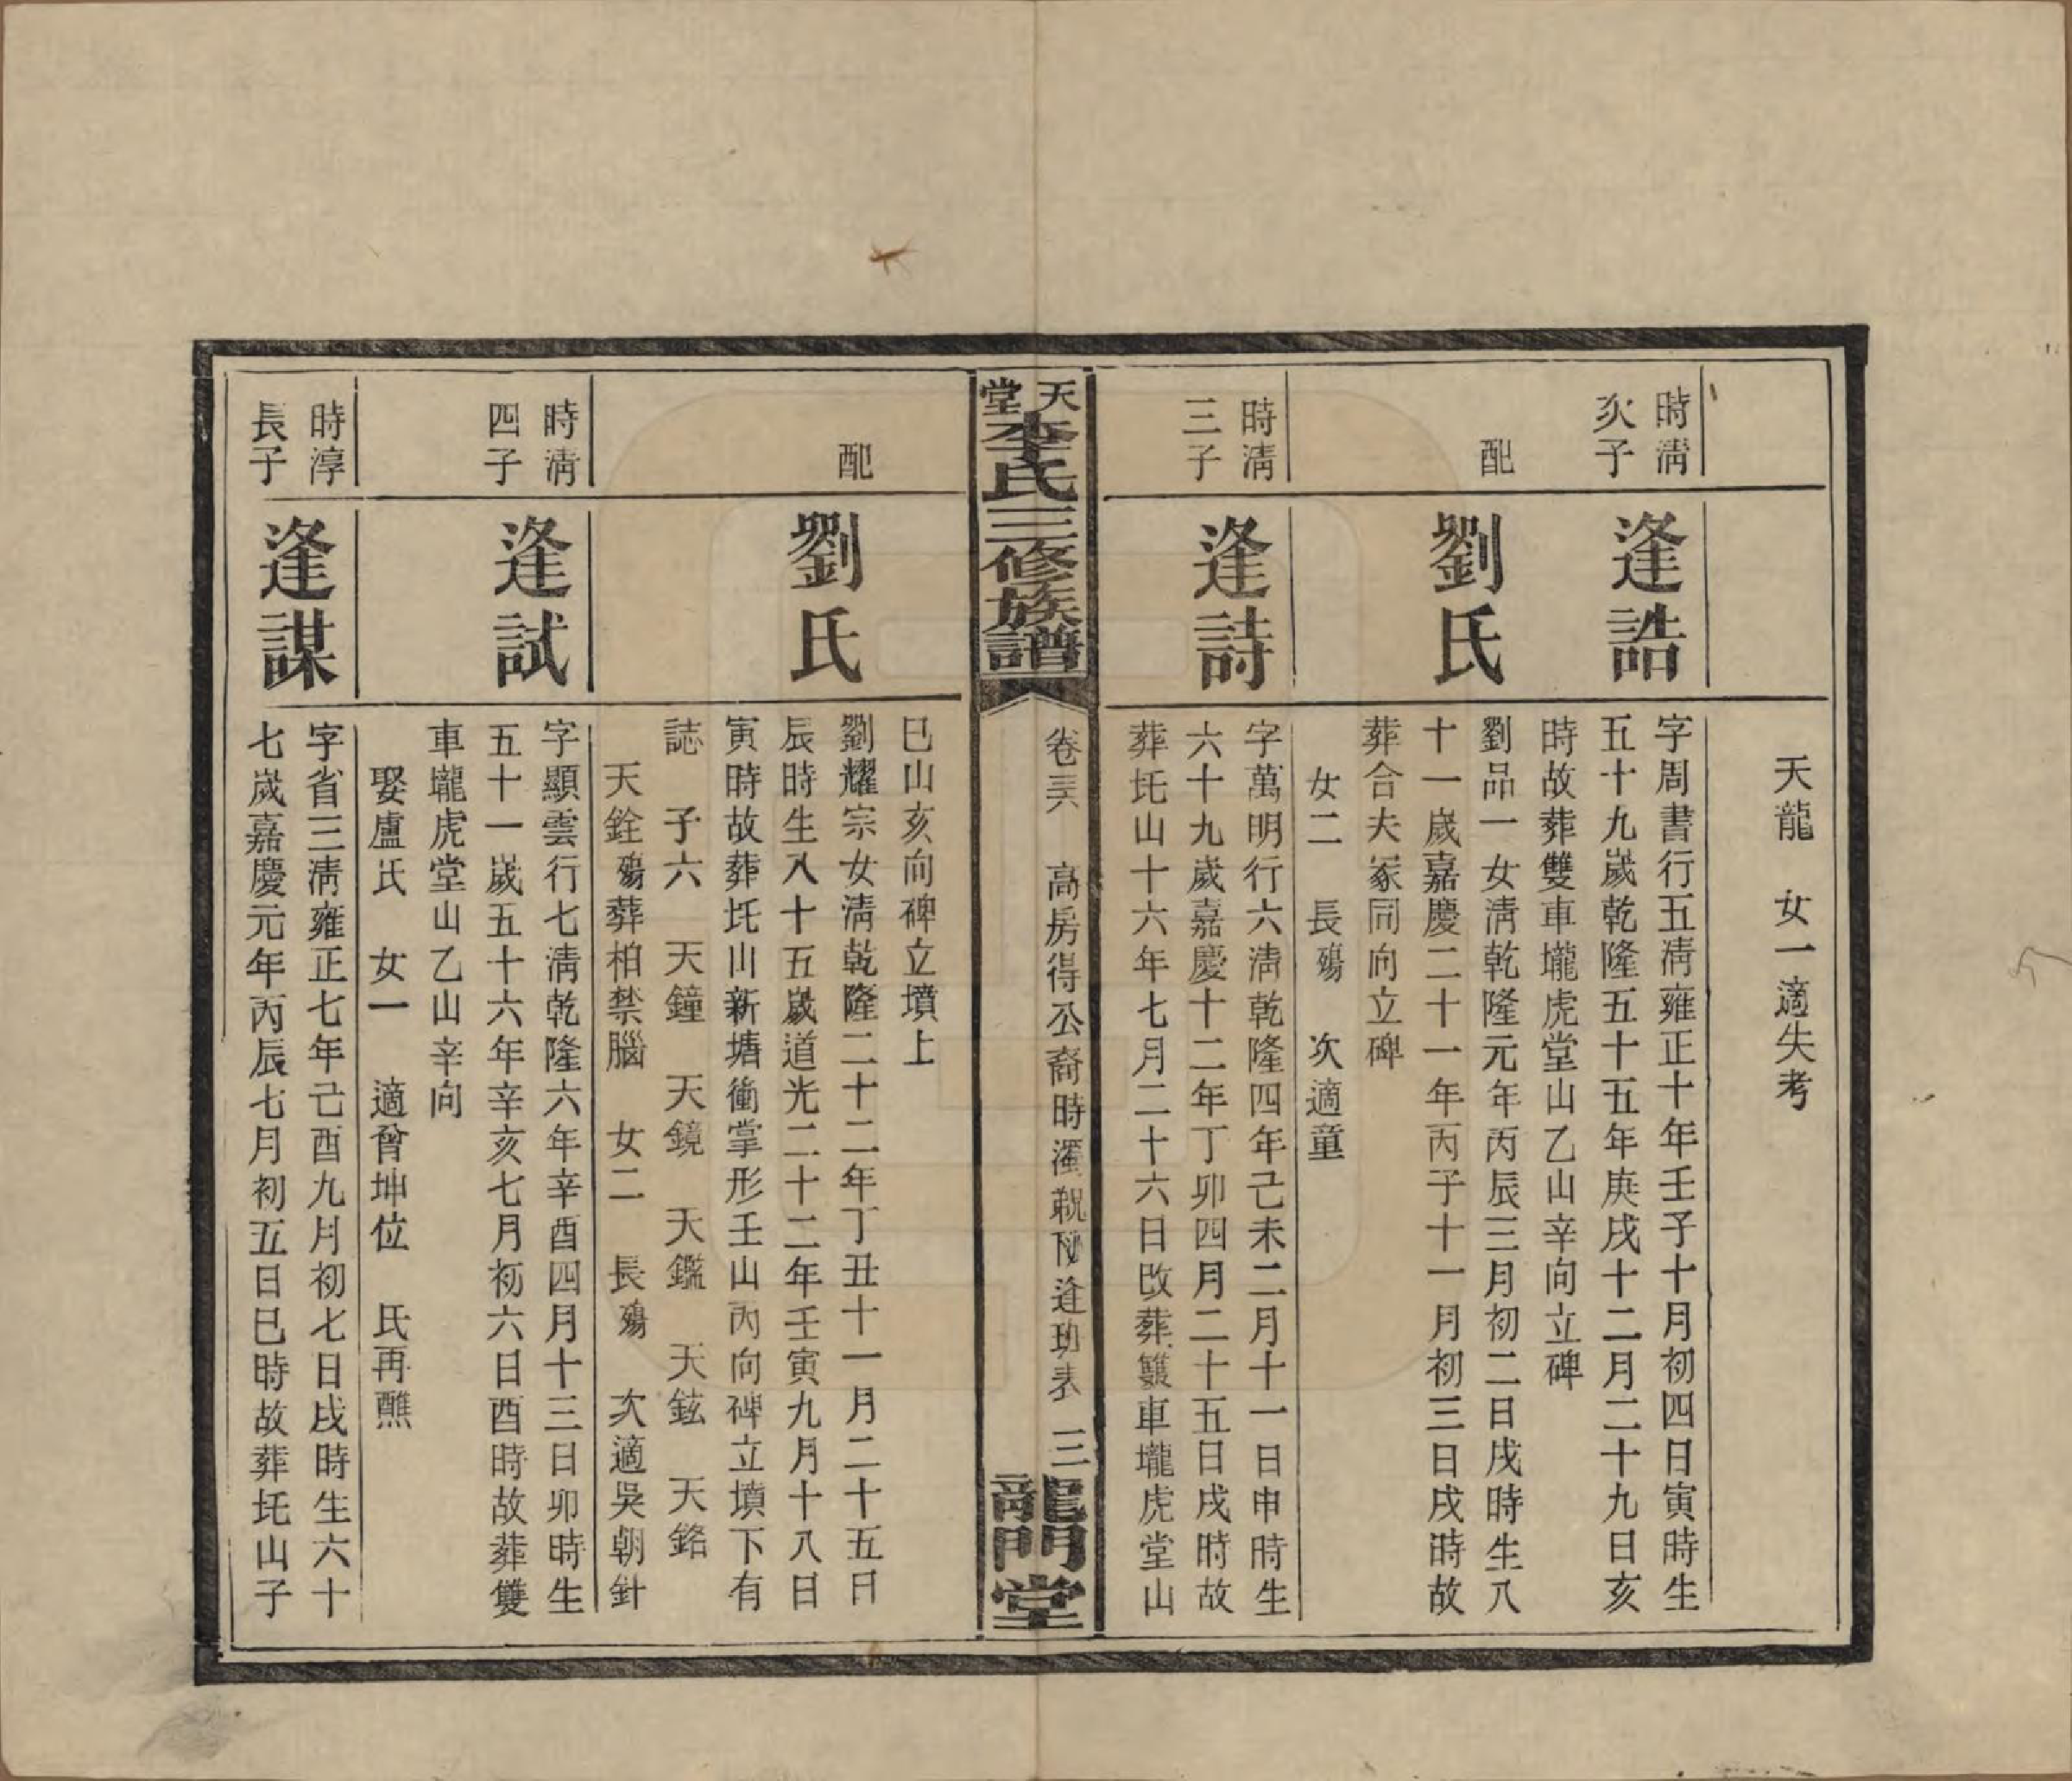 天龍　女一適失考
時淸
次子
逢誥
字周書行五淸雍正十年壬子十月初四日寅時生
五十九歲乾隆五十五年庚戌十二月二十九日亥
時故葬雙車壠虎堂山乙山辛向立碑
配
劉氏
劉品一女淸乾隆元年丙辰三月初二日戌時生八
十一歲嘉慶二十一年丙子十一月初三日戌時故
葬合夫冢同向立碑
女二　長殤　次適童
時淸
三子
逢詩
字萬明行六淸乾隆四年己未二月十一日申時生
六十九歲嘉慶十二年丁卯四月二十五日戌時故
葬圫山十六年七月二十六日改葬雙車壠虎堂山
天堂李氏三修族譜
卷三六
高房得公裔時濁親陟逢班表　三
龍門堂
巳山亥向碑立墳上
配
劉氏
劉耀宗女淸乾隆二十二年丁丑十一月二十五日
辰時生八十五歲道光二十二年壬寅九月十八日
寅時故葬圫山新塘衝掌形壬山丙向碑立墳下有
誌　子六　天鐘　天鏡　天鑑　天鉉　天銘
天銓殤葬柏禁腦　女二　長殤　次適吳朝針
時淸
四子
逢試
字顯雲行七淸乾隆六年辛酉四月十三日卯時生
五十一歲五十六年辛亥七月初六日酉時故葬雙
車壠虎堂山乙山辛向
娶盧氏　女一　適曾坤位　氏再醮
時淳
長子
逢謀
字省三淸雍正七年己酉九月初七日戌時生六十
七歲嘉慶元年丙辰七月初五日巳時故葬圫山子